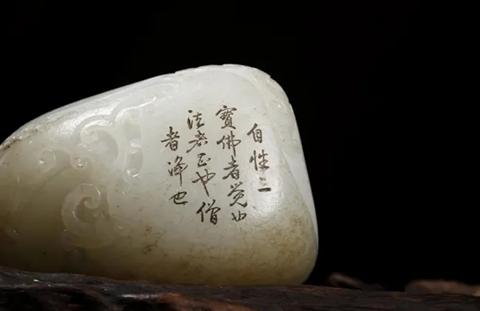 自性三
寳佛者觉也
法者正也僧
者净也